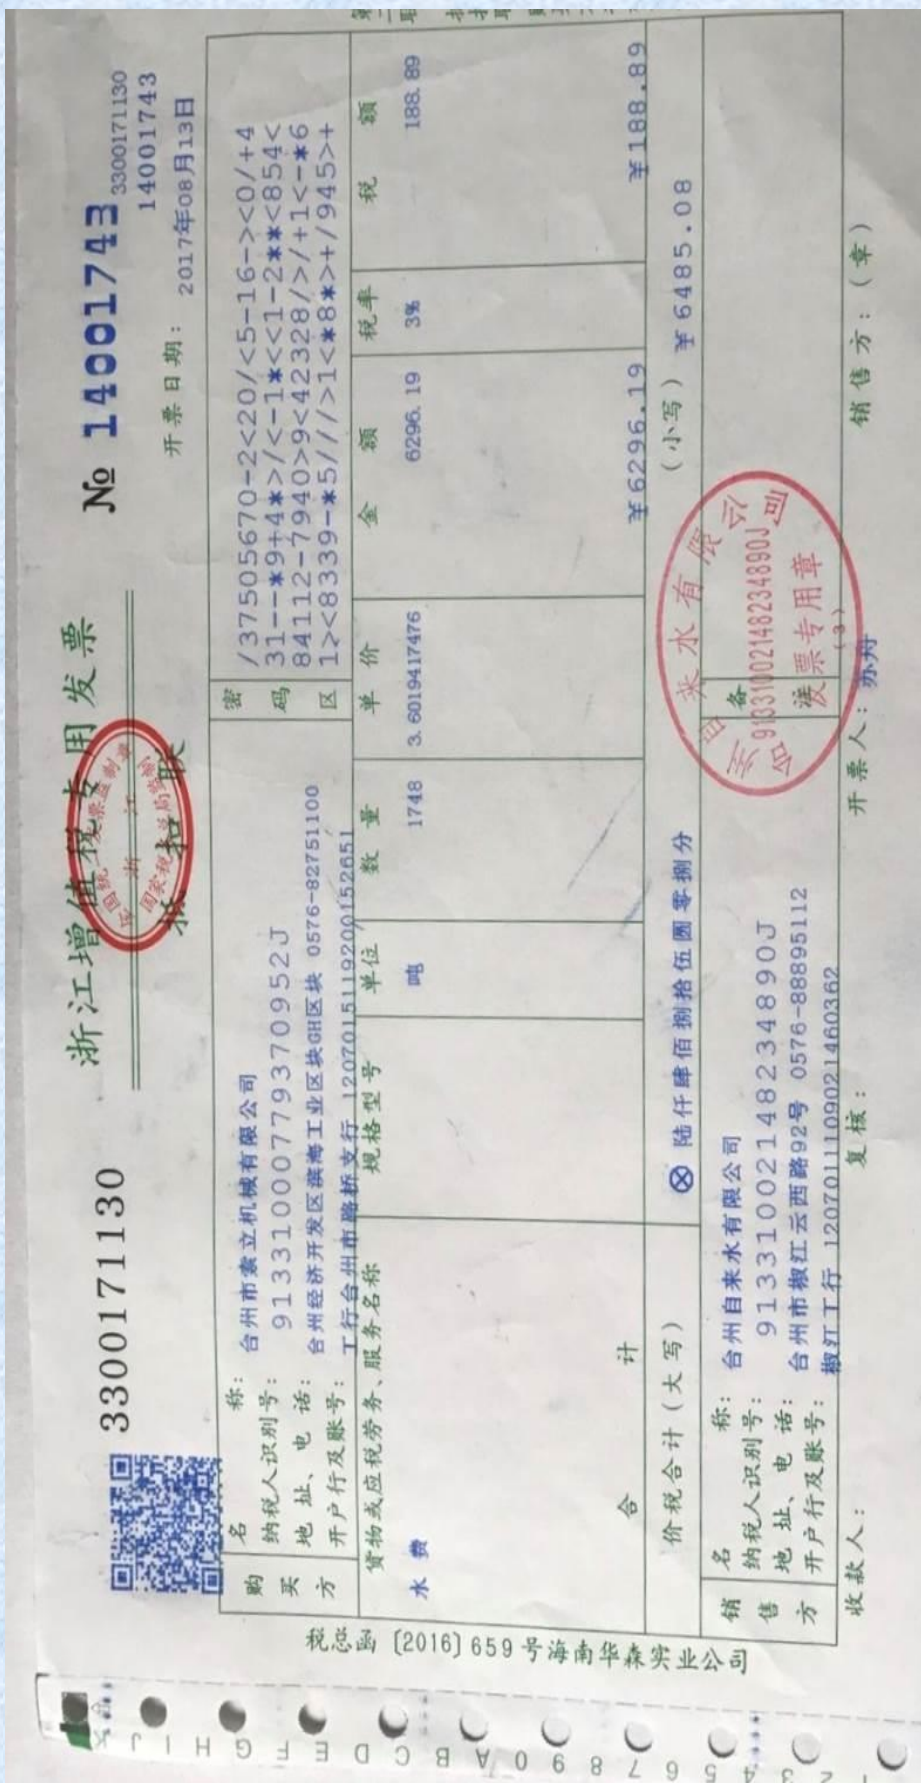 3300171130
浙江增值税专用发票
№ 14001743
3300171130
14001743
抵扣联
开票日期： 2017年08月13日
购买方
名称： 台州市索立机械有限公司
纳税人识别号： 91331000779370952J
地址、电话： 台州经济开发区滨海工业区块GH区块 0576-82751100
开户行及账号： 工行台州市路桥支行 1207015119200152651
密码区
/37505670-2<20/<5-16-><0/+4
31--*9+4*>/<-1*<<1-2**<854<
84112-7940>9<42328/>/+1<-*6
1><8339-*5///>1<*8*>+/945>+
货物或应税劳务、服务名称 规格型号 单位 数量 单价 金额 税率 税额
水费 吨 1748 3.6019417476 6296.19 3% 188.89
合计 ¥6296.19 ¥188.89
价税合计（大写） ⊗ 陆仟肆佰捌拾伍圆零捌分 （小写） ¥6485.08
销售方
名称： 台州自来水有限公司
纳税人识别号： 91331002148234890J
地址、电话： 台州市椒江云西路92号 0576-88895112
开户行及账号： 椒江工行 1207011109021460362
备注
台州自来水有限公司
91331002148234890J
发票专用章
(3)
收款人： 复核： 开票人： 苏舟 销售方：（章）
税总函〔2016〕659号海南华森实业公司